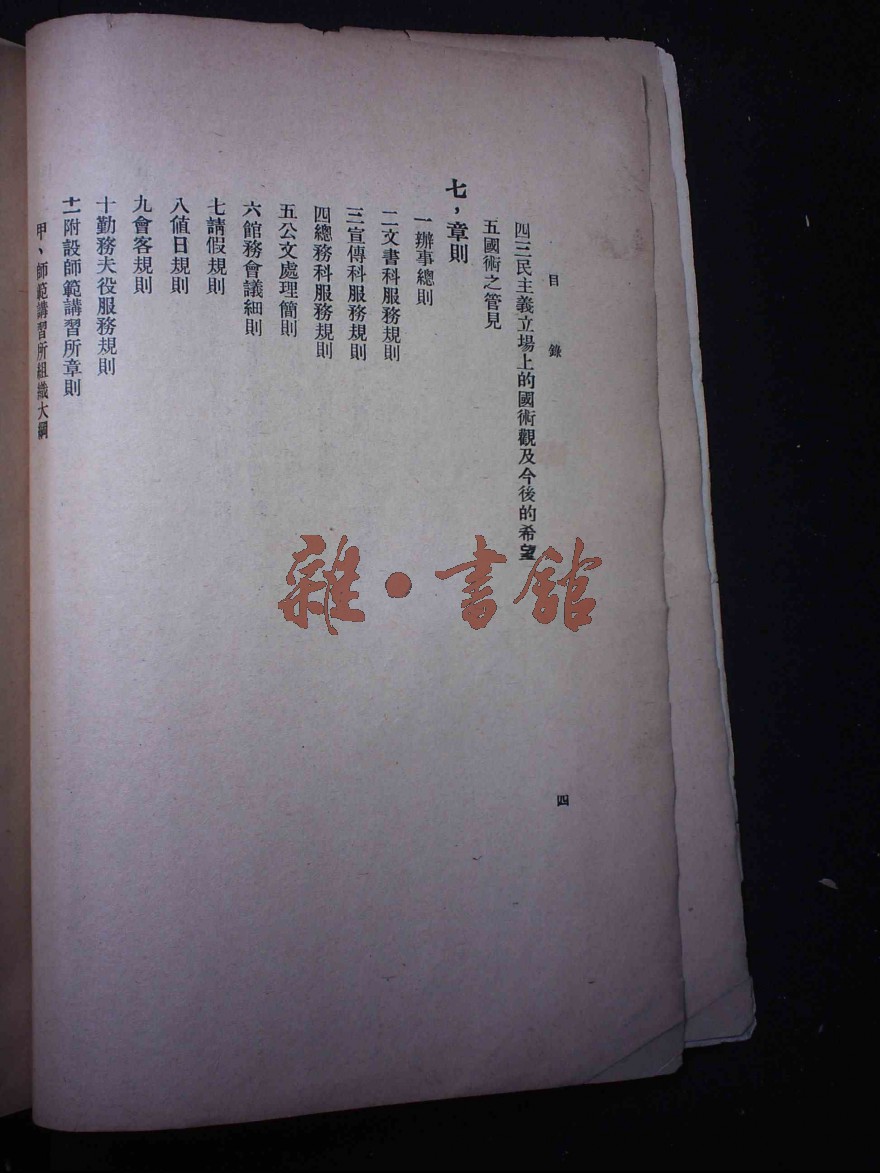 目錄
四三民主義立場上的國術觀及今後的希望
五國術之管見
七，章則
一辦事總則
二文書科服務規則
三宣傳科服務規則
四總務科服務規則
五公文處理簡則
六館務會議細則
七請假規則
八値日規則
九會客規則
十勤務夫役服務規則
十一附設師範講習所章則
甲、師範講習所組織大綱
四
雜·書館